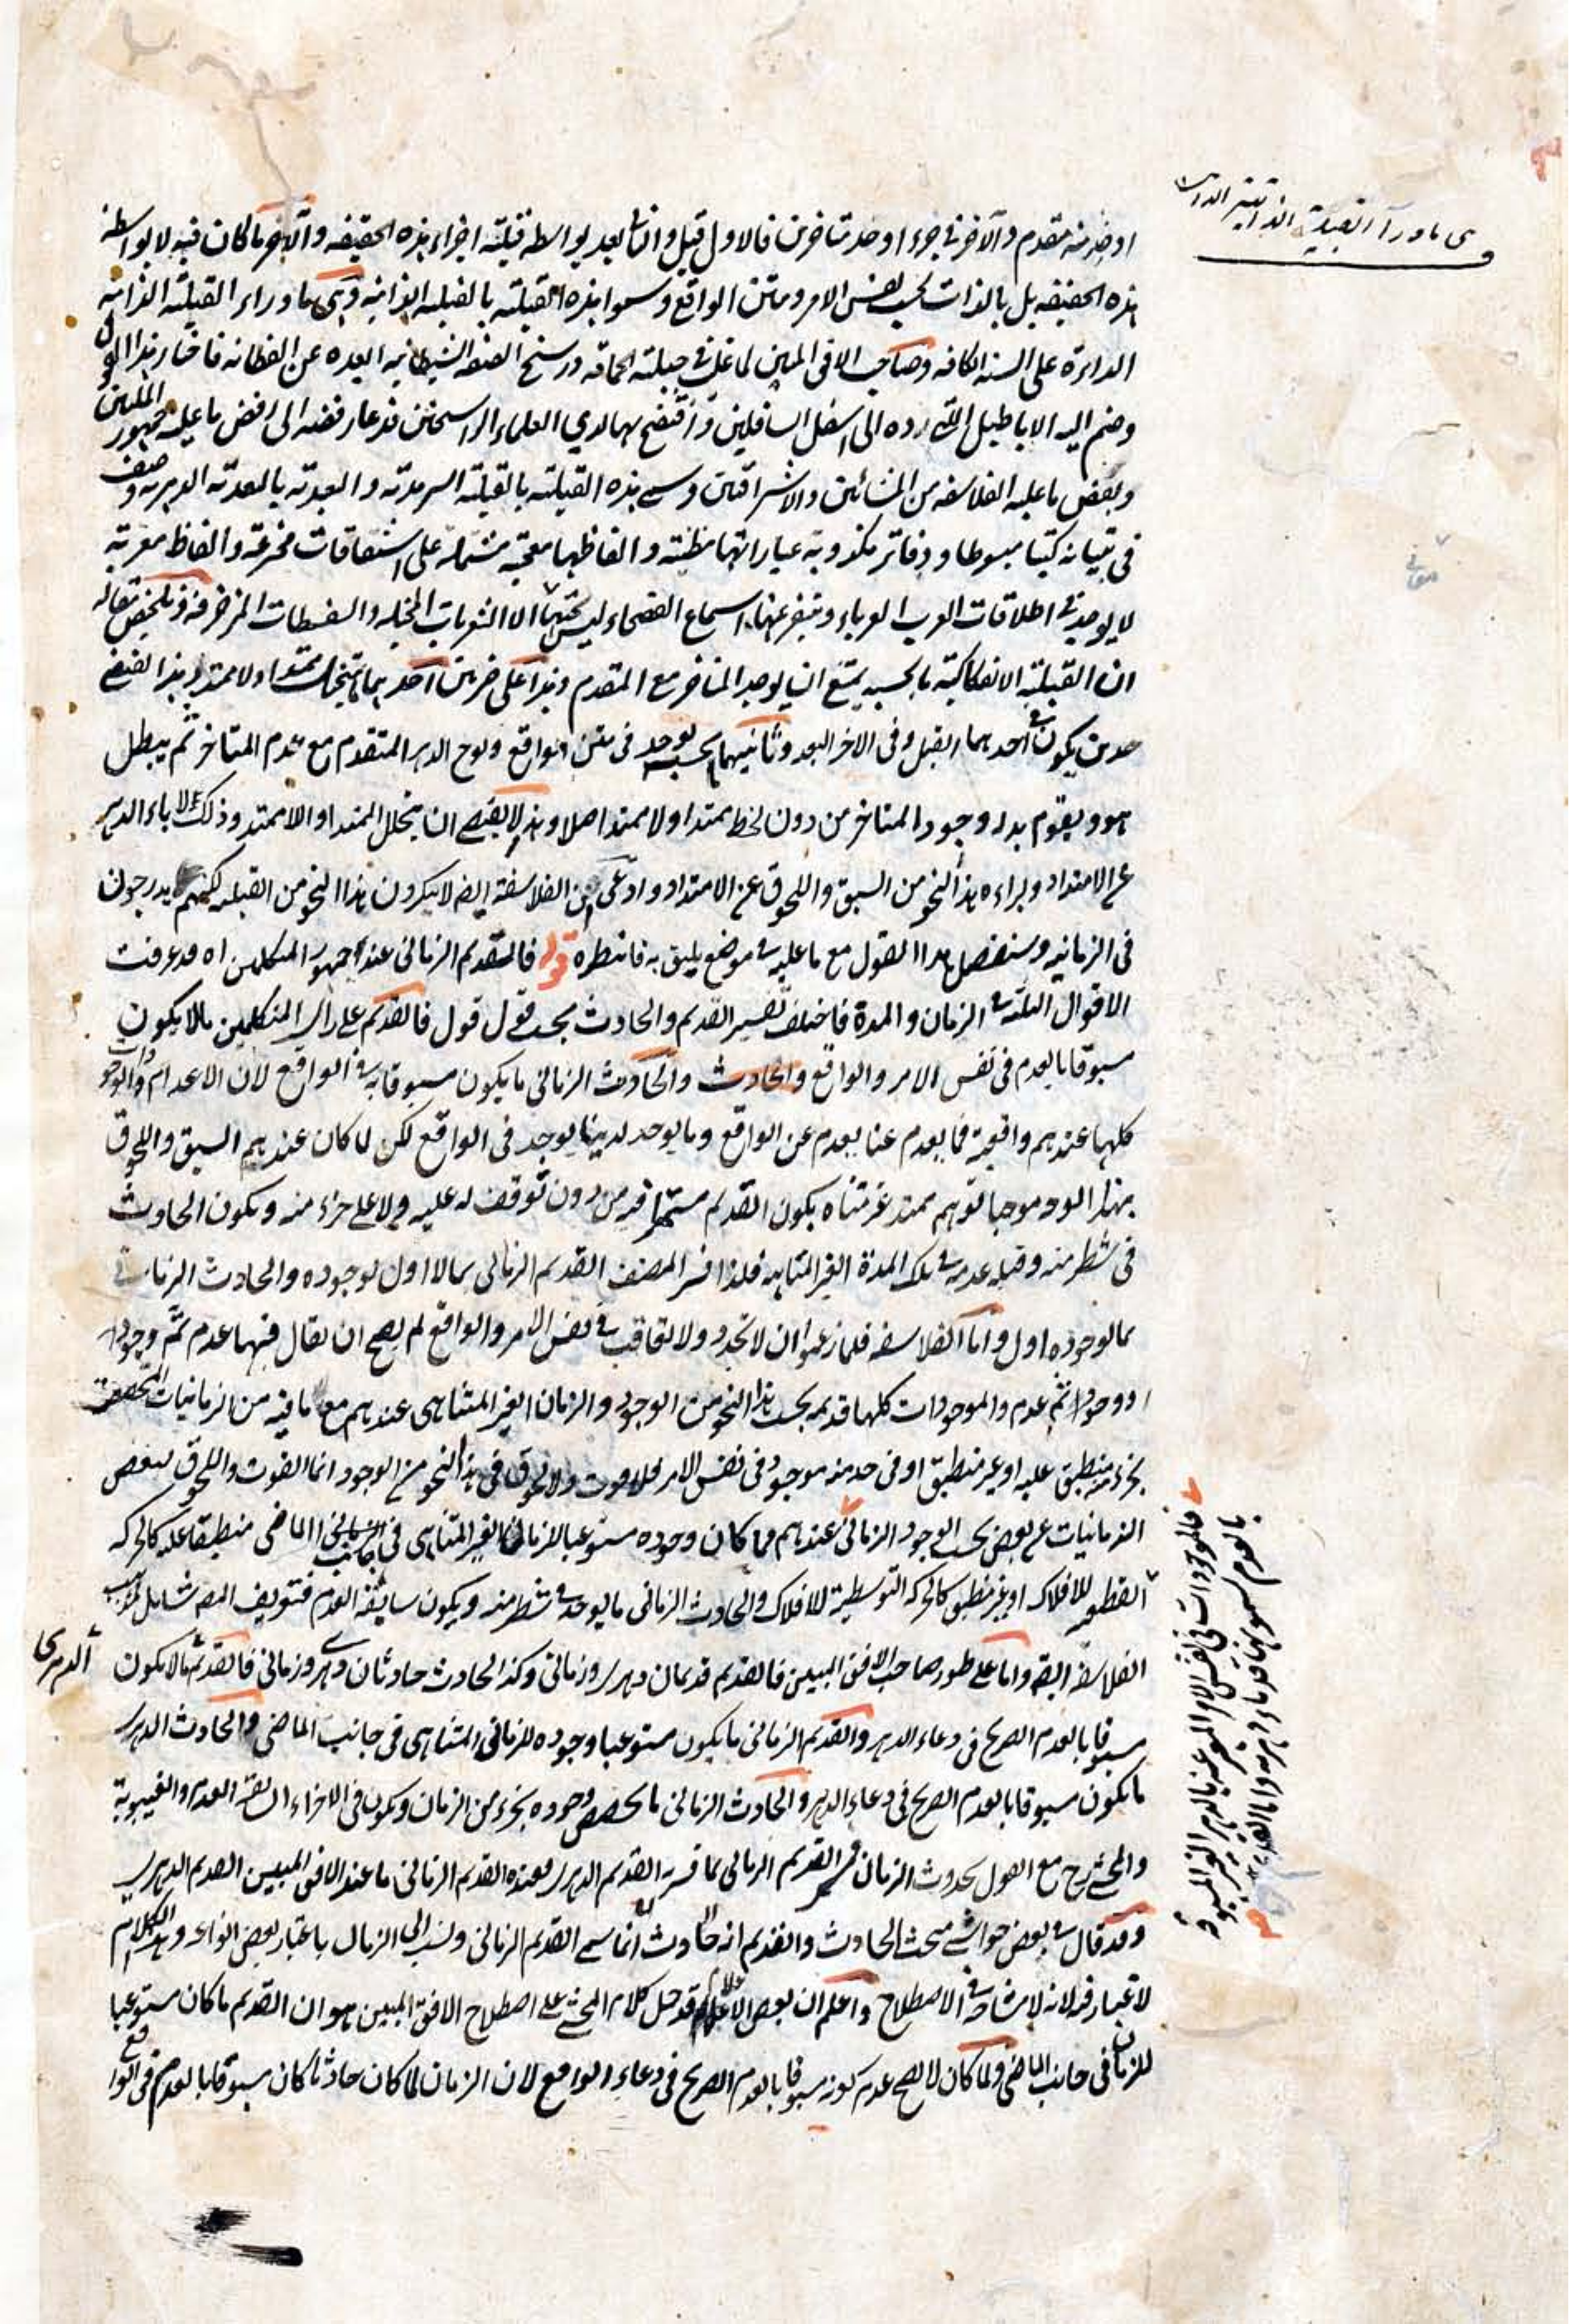 او حد منه متقدم والآخر في جزء او حد متاخر من فالاول قبل والثاني بعد بواسطة قبلية اجزاء هذه الحقيقة والآخر ما كان فيه لا بواسطة
هذه الحقيقة بل بالذات بحسب نفس الامر ومتن الواقع وسموا هذه القبلية بالقبلية الذاتية وهي ما وراء القبلية الذاتية
الدائرة على السنة الكافة وصاحب الافق المبين لما غلب في جبلته الحماقة ورسخ الشيطانية البعيدة عن الفطانة فاختار هذا القول
وضم اليه الاباطيل التي رده الى اسفل السافلين وافتضح بها لدي العلماء الراسخين فدعا رفضه الى رفض ما عليه جمهور المليين
وبعض ما عليه الفلاسفة من المشائين والاشراقيين وسمى هذه القبلية بالقبلية السرمدية والبعدية بالبعدية الدهرية وصنف
في تبيانه كتبا مبسوطا ودفاتر مكذوبة عباراتها مظنية والفاظها معجبة مشتملة على اشتقاقات مخترعة والفاظ معربة
لا يوجد في اطلاقات العرب العرباء وتنفر عنها اسماع الفصحاء ليس تحتها الا الشعريات المخيلة والسفسطات المزخرفة وتلخيص مقاله
ان القبلية الانفكاكية ما بحسبه يمتنع ان يوجد المتاخر مع المتقدم وهذا على ضربين احدهما يتخلل ممتد او لا ممتد وهذا يقتضي
حدين يكون في احدهما القبل وفي الآخر البعد وثانيهما بحسبه يوجد في متن الواقع ولوح الدهر المتقدم مع عدم المتاخر ثم يبطل
هو ويقوم بدله وجود المتاخر من دون لحظ ممتد او لا ممتد اصلا وهذا لا يقتضي ان يتخلل الممتد او اللاممتد وذلك لاباء الدهر
عن الامتداد وبراءه هذا النحو من السبق واللحوق عن الامتداد وادعى ان الفلاسفة ايضا لا ينكرون هذا النحو من القبلية لكنهم يدرجون
في الزمانية وسنفصل هذا القول مع ما عليه في موضع يليق به فانتظره قوله فالتقدم الزماني عند جمهور المتكلمين اه قد عرفت
الاقوال الثلثة في الزمان والمدة فاختلف تفسير القديم والحادث بحسب قول قول فالقديم على راي المتكلمين ما لا يكون
مسبوقا بالعدم في نفس الامر والواقع والحادث والحادث الزماني ما يكون مسبوقا به في الواقع لان الاعدام والوجودات
كلها عندهم واقعية فما يعدم عنا يعدم عن الواقع وما يوجد لدينا يوجد في الواقع لكن لما كان عندهم السبق واللحوق
بهذا الوجه موجبا لتوهم ممتد غير متناه يكون القديم مستمرا فيه من دون توقف له عليه ولا على جزء منه ويكون الحادث
في شطر منه وقبله عدمه في تلك المدة الغير المتناهية فلذا فسر المصنف القديم الزماني بما لا اول لوجوده والحادث الزماني
بما لوجوده اول واما الفلاسفة فلما زعموا ان لا تجدد ولا تعاقب في نفس الامر والواقع لم يصح ان يقال فيها عدم ثم وجود
او وجود ثم عدم والموجودات كلها قديمة بحسب هذا النحو من الوجود والزمان الغير المتناهي عندهم مع ما فيه من الزمانيات المتحققة
بجزء منه منطبق عليه او غير منطبق او في حد منه موجود في نفس الامر فلا فوت ولا لحوق في هذا النحو من الوجود انما الفوت واللحوق لبعض
الزمانيات عن بعض بحسب الوجود الزماني عندهم فما كان وجوده مستوعبا للزمان الغير المتناهي في جانب الماضي منطبقا عليه كالحركة
القطعية للافلاك او غير منطبق كالحركة التوسطية للافلاك والحادث الزماني ما يوجد في شطر منه ويكون سابقه العدم فتعريف المص شامل لمذهب
الفلاسفة ايضا واما على طور صاحب الافق المبين فالقديم قديمان دهري وزماني وكذا الحادث حادثان دهري وزماني فالقديم ما لا يكون
الدهري
مسبوقا بالعدم الصريح في وعاء الدهر والقديم الزماني ما يكون مستوعبا وجوده للزماني المتناهي في جانب الماضي والحادث الدهري
ما يكون مسبوقا بالعدم الصريح في وعاء الدهر والحادث الزماني ما يخصص وجوده بجزء من الزمان ويكون في الاجزاء السابقة العدم والغيبوبة
والمحشي رح مع القول بحدوث الزمان فسر القديم الزماني بما فسر به القديم الدهري فعنده القديم الزماني ما عند الافق المبين القديم الدهري
وقد قال في بعض حواشي مبحث الحادث والقديم انه حادث انما سمي القديم الزماني ونسب الى الزمان باعتبار بعض انواعه وهذا الكلام
لا غبار فيه لانه لا مشاحة في الاصطلاح واعلم ان بعض الاعلام قد حمل كلام المحشي على اصطلاح الافق المبين هو ان القديم ما كان مستوعبا
للزمان في جانب الماضي ولما كان لا يصح عدم كونه مسبوقا بالعدم الصريح في وعاء الواقع لان الزمان لما كان حادثا كان مسبوقا بالعدم في الواقع
وهي ما وراء القبلية الذاتية الدائرة
فالموجودات في نفس الامر المعبر عنه بالدهر الغير المسبوقة